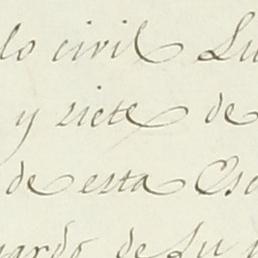 do civil Lu
y siete de
de esta Esc
uardo de su